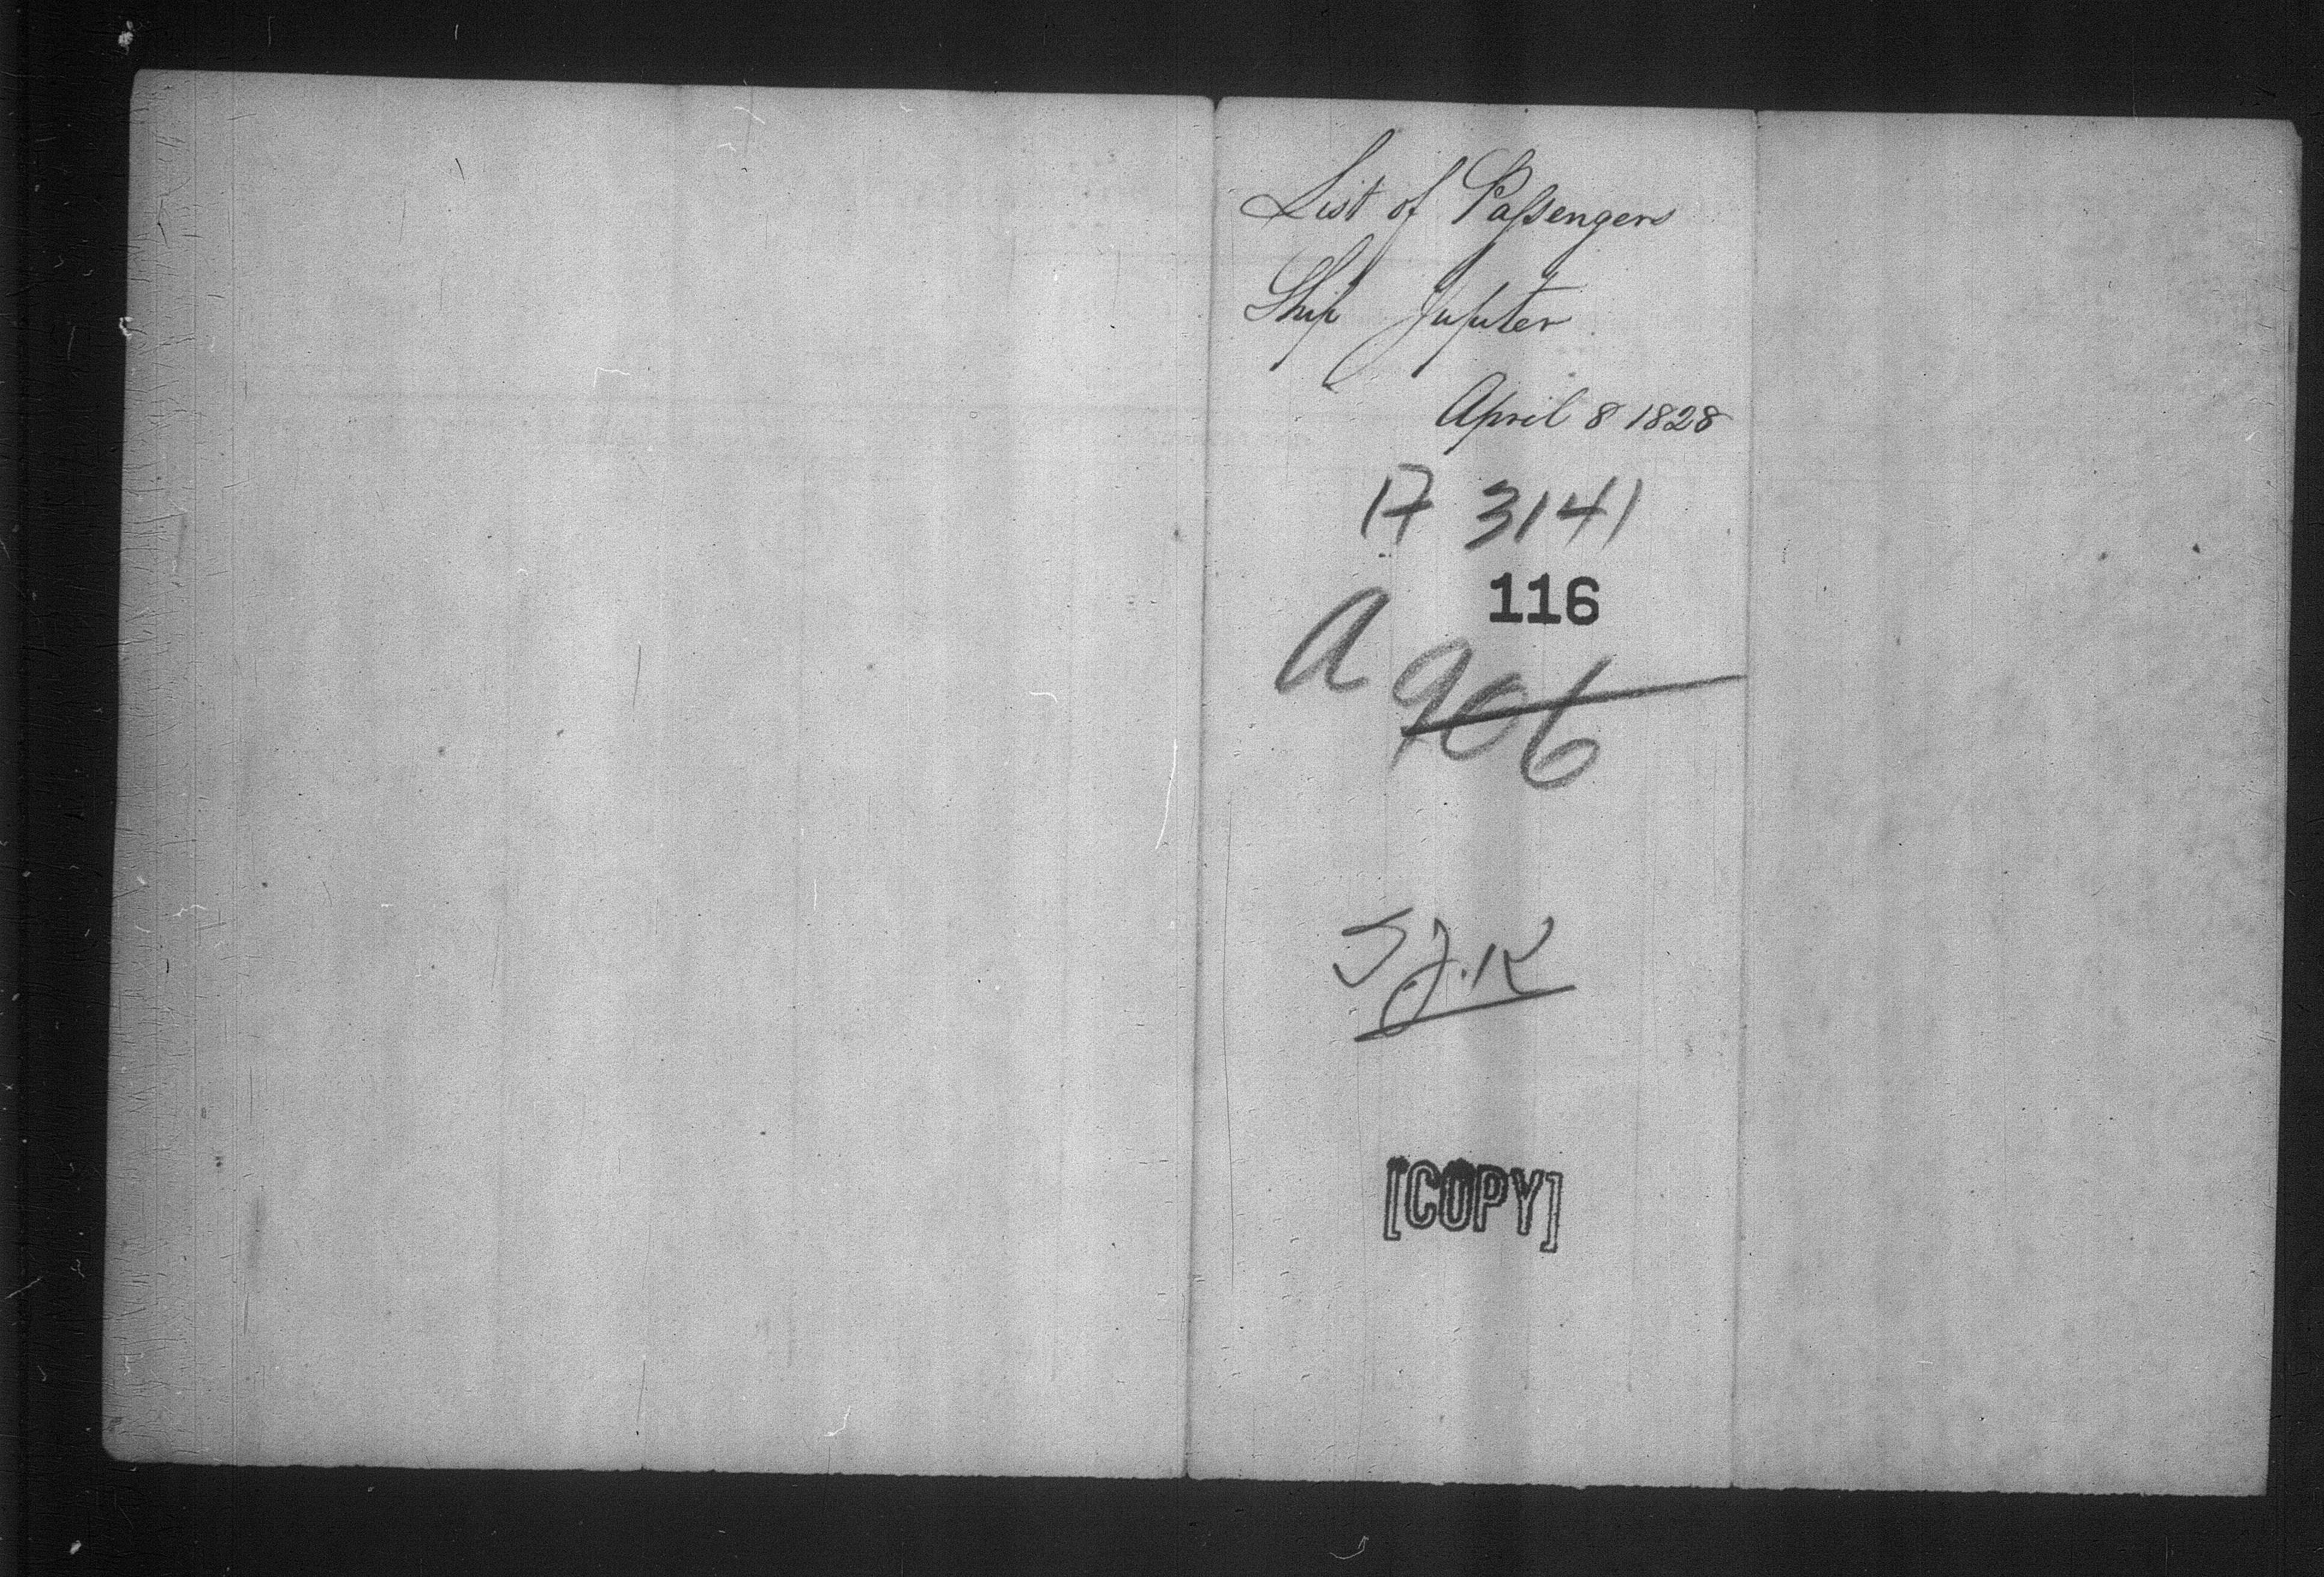 List of Passengers
Ship Jupiter
April 8 1828
17 3141
116
A 906
S.J.K
[COPY]